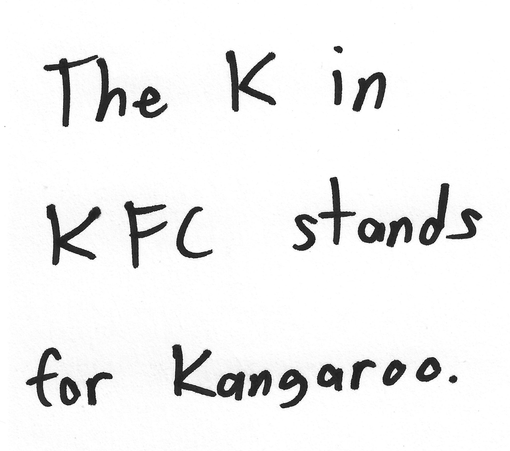 The K in
KFC stands
for Kangaroo.